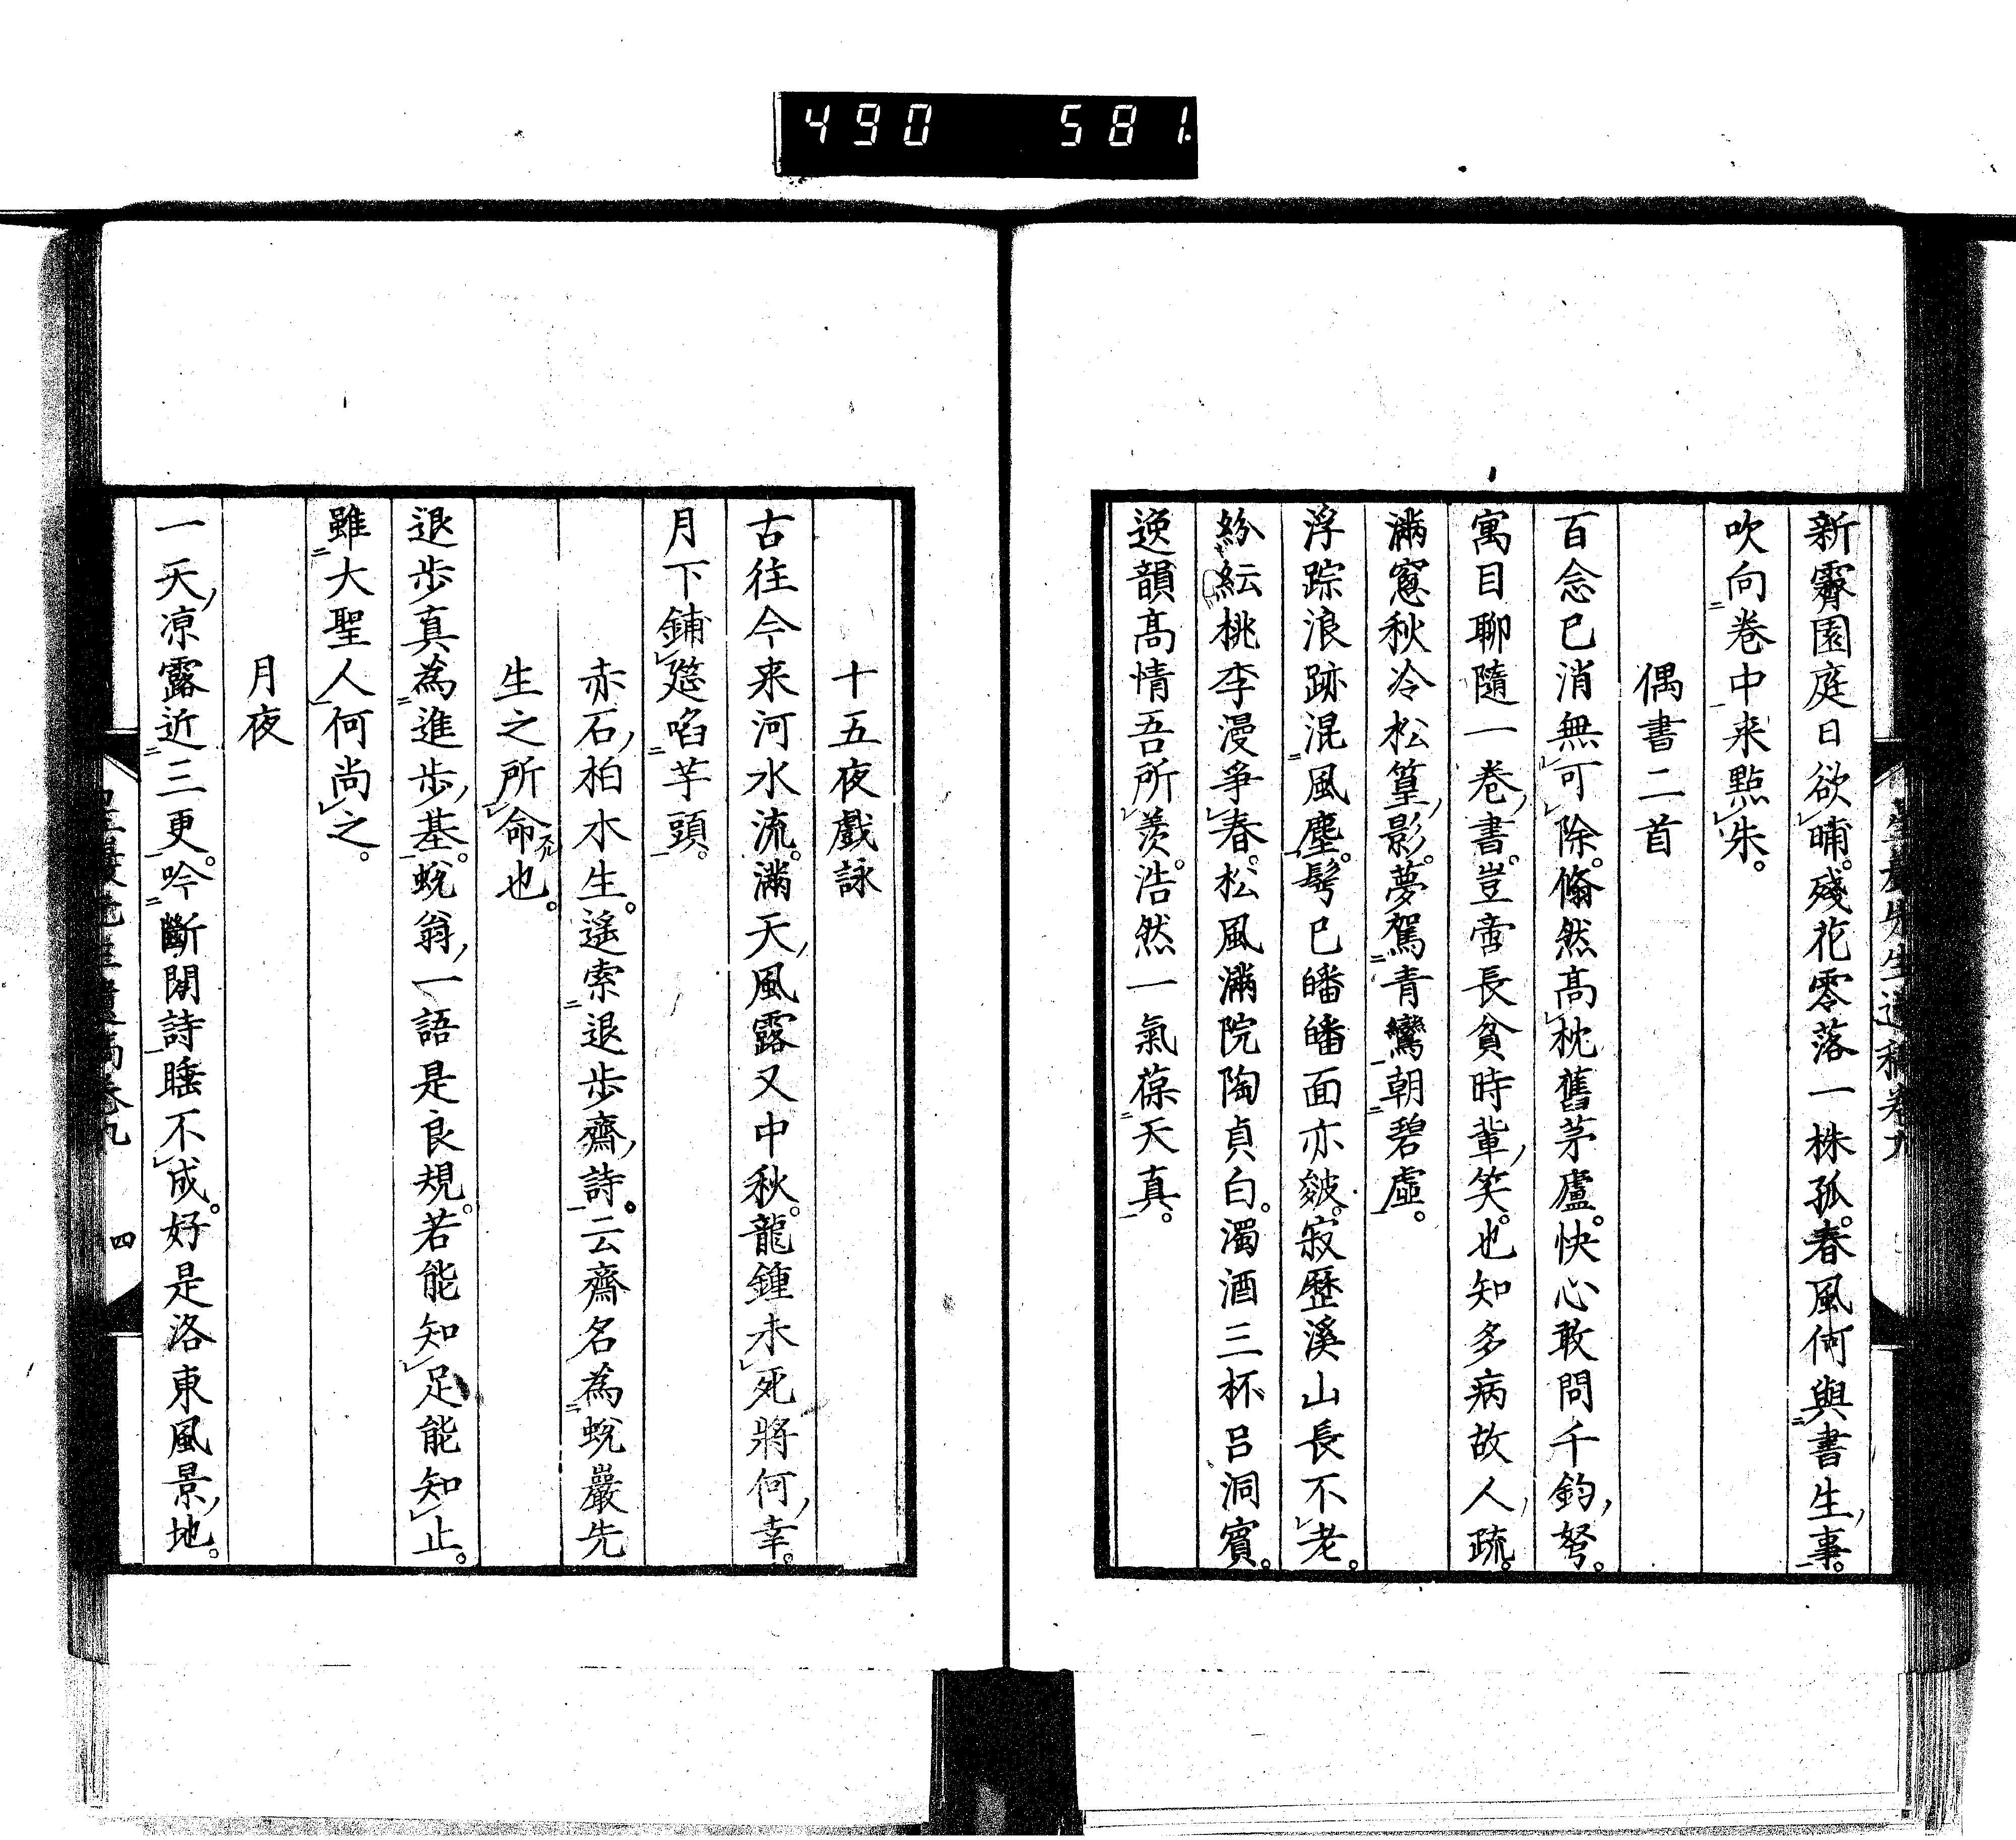 490 581.
新霽園庭日欲晡。殘花零落一株孤。春風何與書生事。
吹向卷中来點朱。
偶書二首
百念已消無可除。翛然高枕舊茅廬。快心敢問千鈞弩。
寓目聊隨一卷書。豈啻長貧時輩笑。也知多病故人疏。
滿窻秋冷松篁影。夢駕青鸞朝碧虛。
浮踪浪跡混風塵。髩已皤皤面亦皴。寂歷溪山長不老。
紛紜桃李漫爭春。松風滿院陶貞白。濁酒三杯呂洞賓。
逸韻高情吾所羨。浩然一氣葆天真。
十五夜戲詠
古往今来河水流。滿天風露又中秋。龍鍾未死將何幸。
月下鋪筵啗芋頭。
赤石柏木生。遙索退步齋詩。云齋名為蛻巖先
生之所命也。
退步真為進步基。蛻翁一語是良規。若能知足能知止。
雖大聖人何尚之。
月夜
一天凉露近三更。吟斷閑詩睡不成。好是洛東風景地。
四